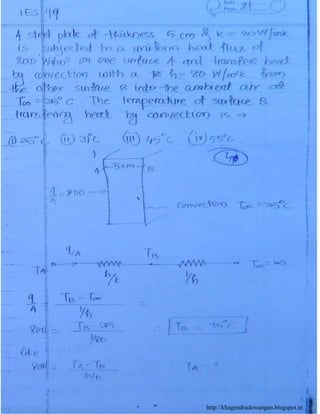 IES 99
Date
Page 21
A steel plate of thickness 5 cm & k = 20 W/mk
is subjected to a uniform heat flux of
800 W/m² on one surface A and transfers heat
by convection with a h = 80 W/m²k from
the other surface B into the ambient air of
T∞ = 25°C. The temperature of surface B
transfering heat by convection is ⇒
(i) 25°C (ii) 35°C (iii) 45°C (iv) 55°C.
A 5cm B
q/A = 800
Convection T∞ = 25°C
q/A TB
TA b/k 1/h T∞ = 25
q/A = TB - T∞ / 1/h =
800 = TB - 25 / 1/80 TB = 35°C
like
800 = TA - TB / b/k TA =
http://khagendradewangan.blogspot.in